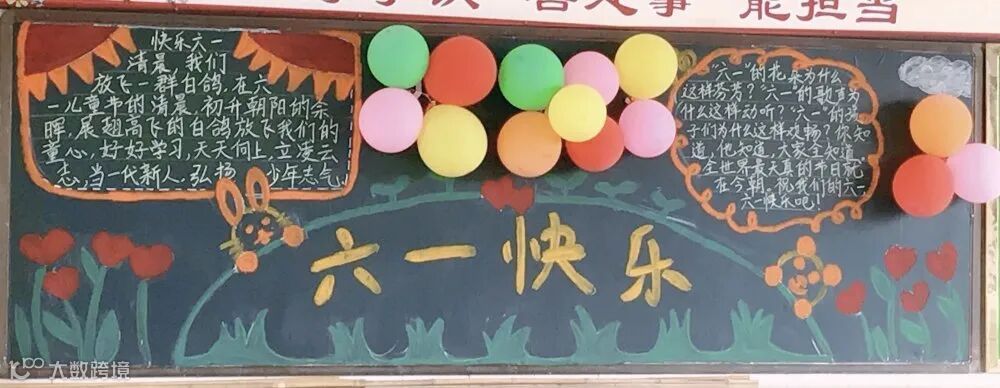 能担当
快乐六一
清晨,我们
放飞一群白鸽,在六
一儿童节的清晨,初升朝阳的余
晖,展翅高飞的白鸽放飞我们的
童心,好好学习,天天向上,立凌云
志,当一代新人.弘扬 少年志气
"六一"的花朵为什么
这样芬芳?"六一"的歌声为
什么这样动听?"六一"的孩
子们为什么这样欢畅?你知
道,他知道,大家全知道
全世界最天真的节日就
在今朝.祝我们的六一
六一快乐吧!
六一快乐
大数跨境